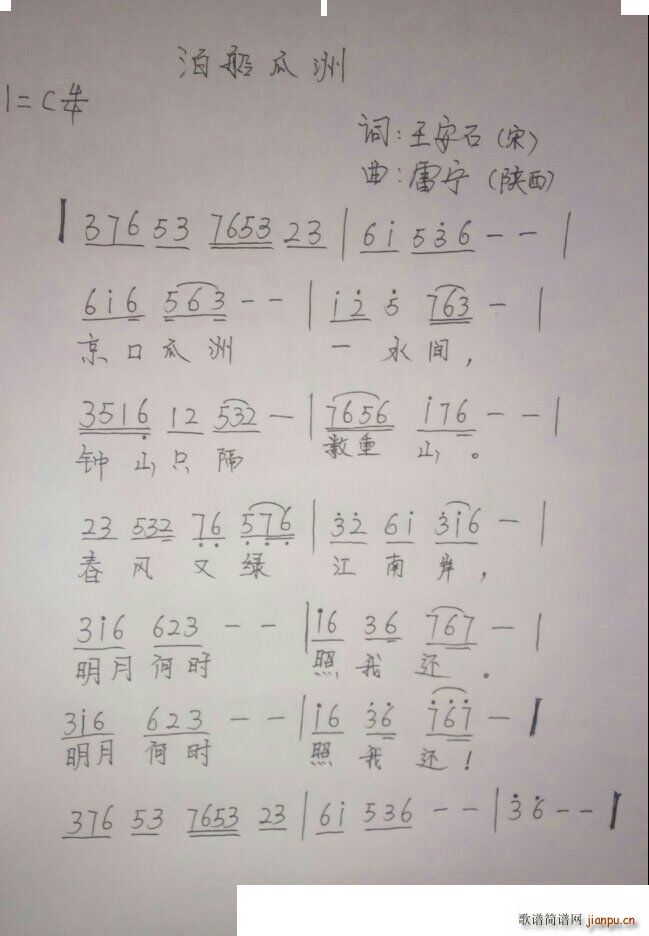 泊船瓜洲
1=C 4/4
词:王安石(宋)
曲:雷宁(陕西)
376 53 7653 23 | 6i 536 - - |
6i6 563 - - | i2 5 763 - |
京口瓜洲 一水间,
3516 12 532 - | 7656 i76 - - |
钟山只隔 数重山。
23 532 76 576 | 32 6i 3i6 - |
春风又绿 江南岸,
3i6 623 - - | i6 36 767 - |
明月何时 照我还。
3i6 623 - - | i6 36 767 - |
明月何时 照我还!
376 53 7653 23 | 6i 536 - - | 36 - - |
歌谱简谱网 jianpu.cn